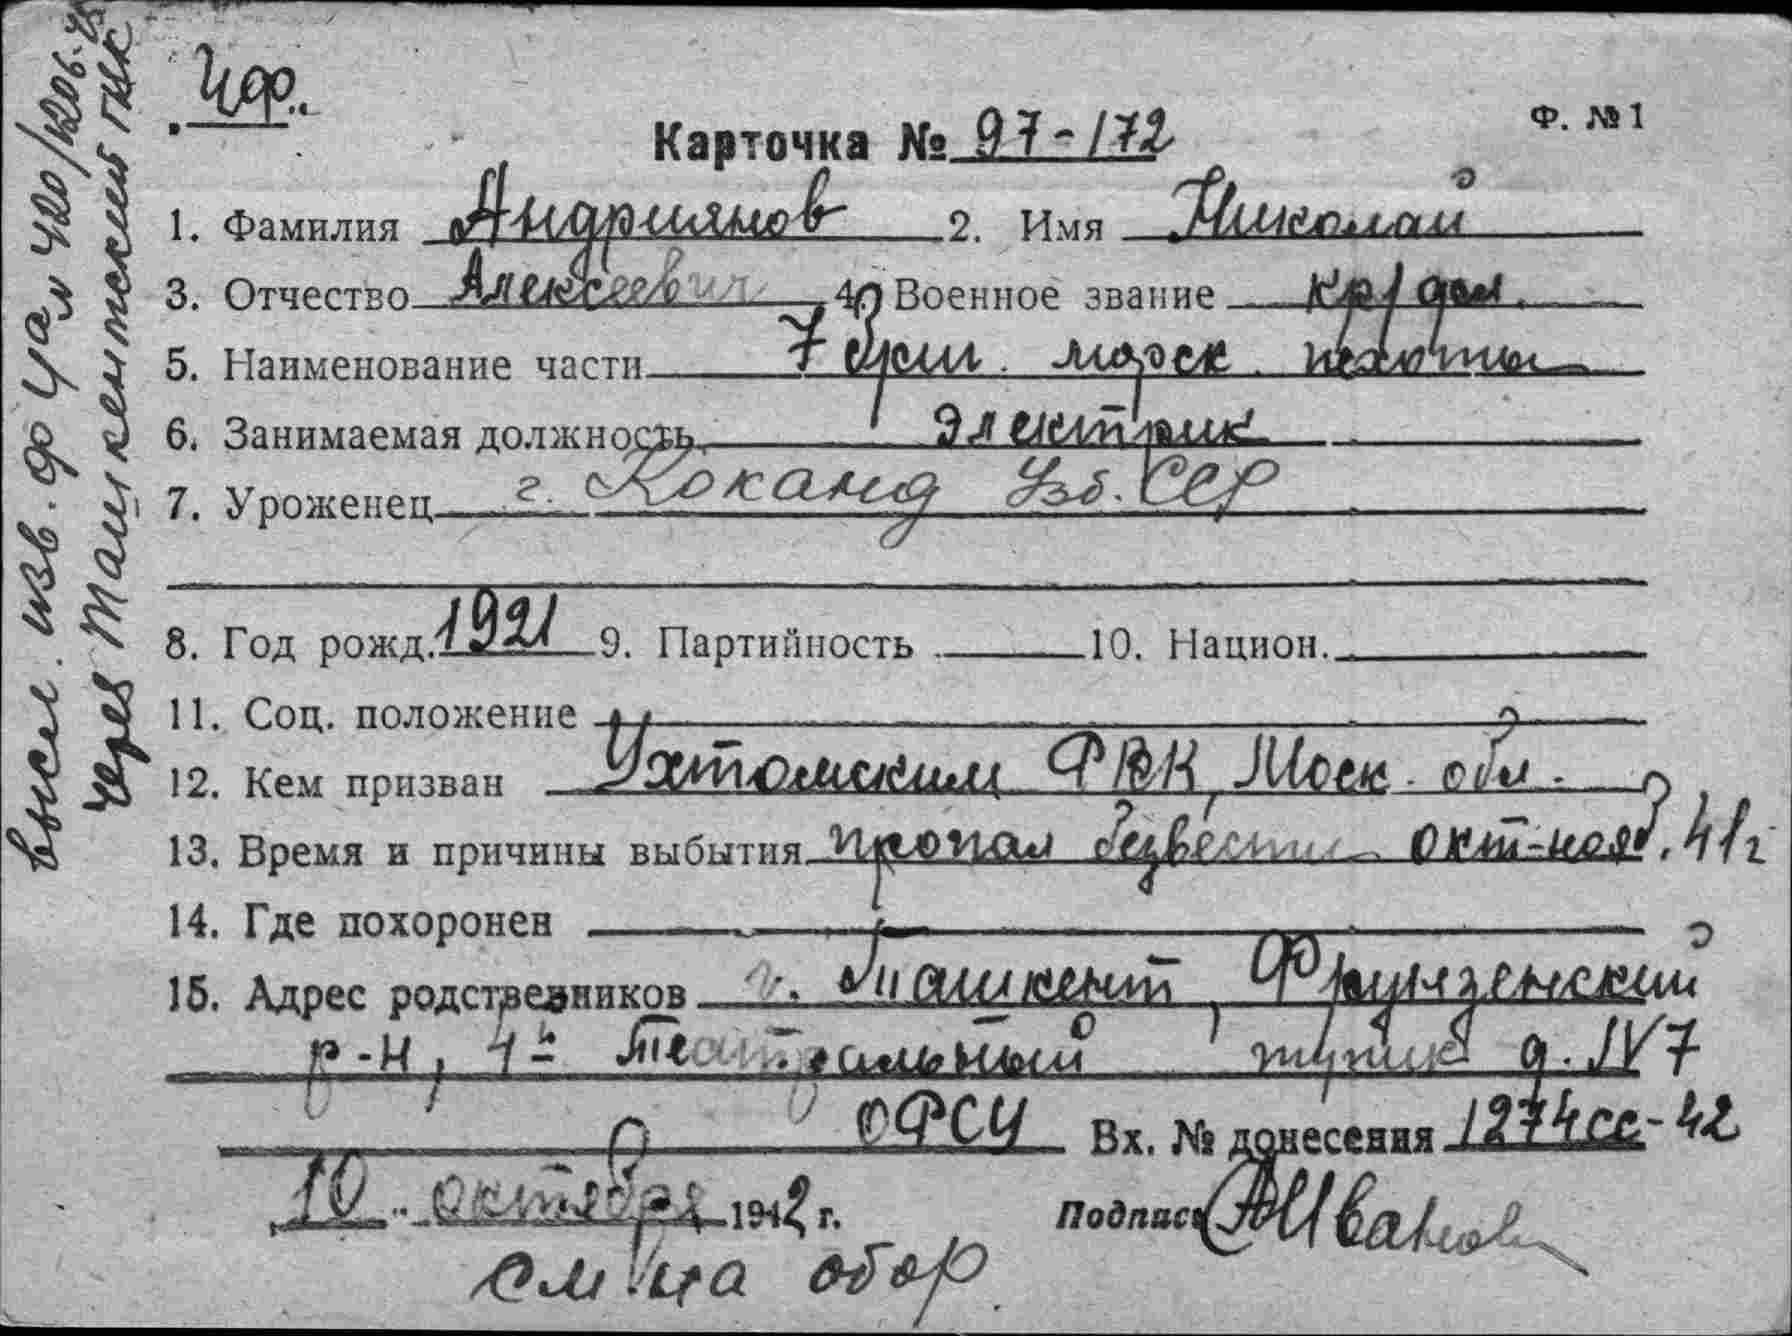 Ф. №1
Карточка № 97-172
1. Фамилия Андриянов 2. Имя Николай
3. Отчество Алексеевич 4. Военное звание кр/фл.
5. Наименование части 7 бриг. морск. пехоты
6. Занимаемая должность электрик
7. Уроженец г. Коканд Узб. ССР
8. Год рожд. 1921 9. Партийность 10. Национ.
11. Соц. положение
12. Кем призван Ухтомским РВК, Моск. обл.
13. Время и причины выбытия пропал безвести окт-нояб. 41г
14. Где похоронен
15. Адрес родственников г. Ташкент, Фрунзенский
р-н, 4й Театральный тупик д. №7
ОФСЧ Вх. № донесения 1274сс-42
10 октября 1942 г. Подпись Иванов
см. на обор.
высл. изв. ф
через Ташкентский ГВК